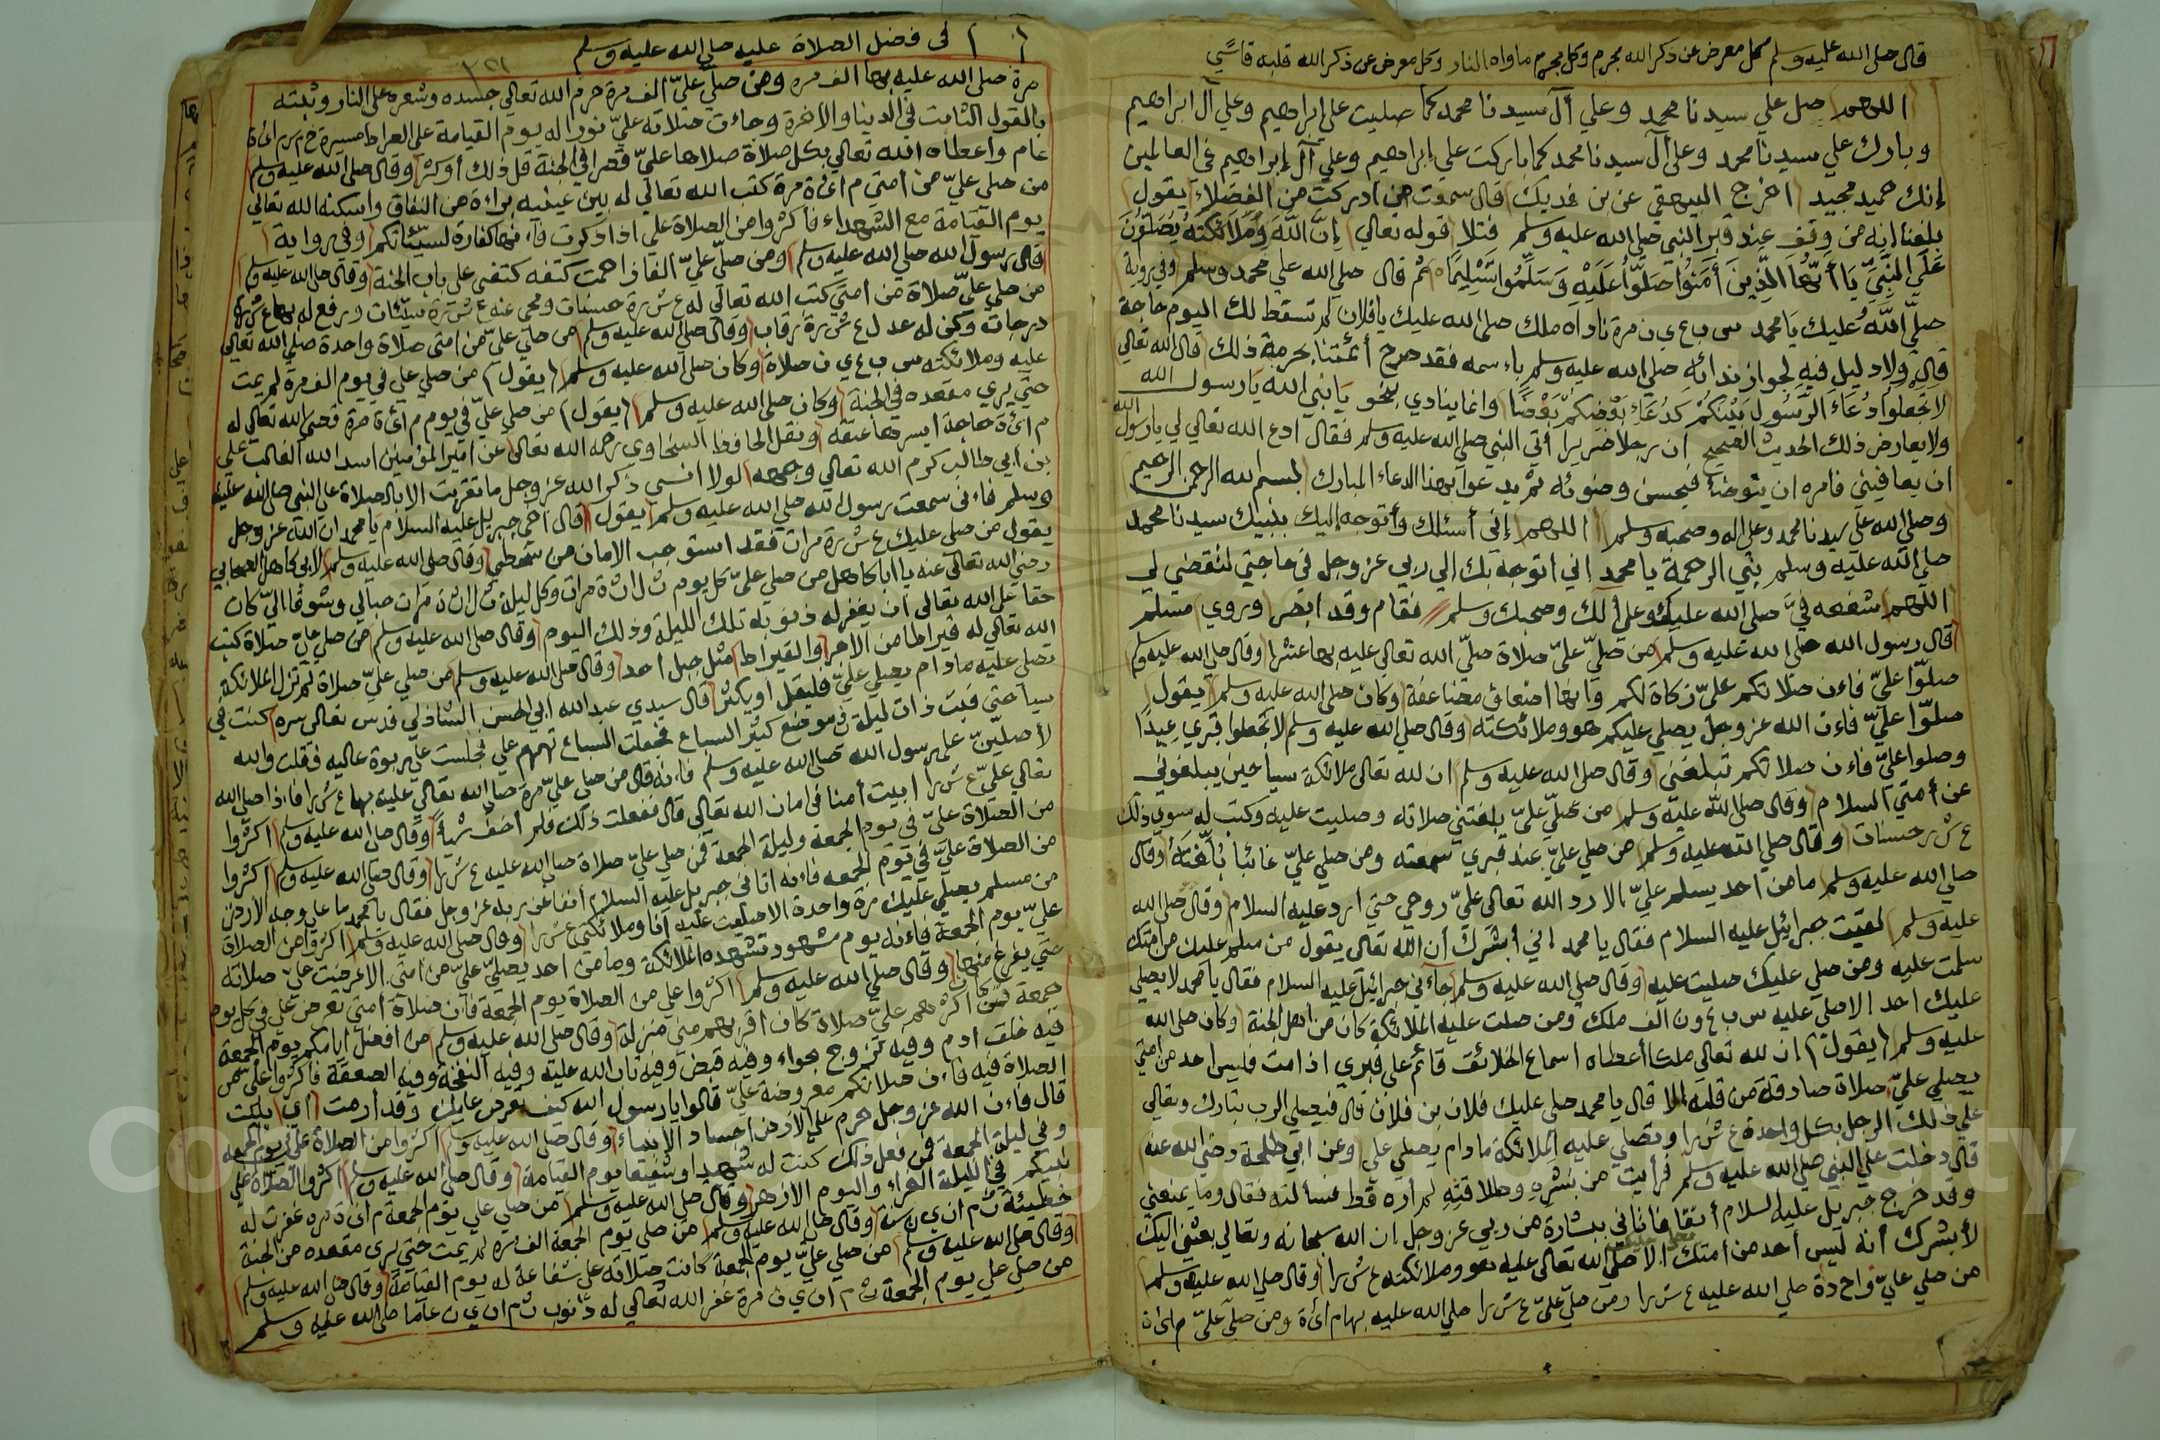 قال صلى الله عليه وسلم كل معرض عن ذكر الله مجرم وكل مجرم ماواه النار وكل معرض عن ذكر الله قلبه قاسي
اللهم صل علي سيدنا محمد وعلي آل سيدنا محمد كما صليت على إبراهيم وعلي آل ابراهيم
وبارك علي سيدنا محمد وعلى آل سيدنا محمد كما باركت علي إبراهيم وعلي آل إبراهيم في العالمين
إنك حميد مجيد اخرج البيهقي عن بن فديك قال سمعت من ادركت من الفضلاء يقول
بلغنا انه من وقف عند قبر النبي صلى الله عليه وسلم فتلا قوله تعالي إن الله وملائكته يصلون
على النبي يا أيها الذين آمنوا صلوا عليه وسلموا تسليما ثم قال صلى الله علي محمد وسلم وفي رواية
صلى الله عليك يا محمد س ب ع ي ن مرة ناداه ملك صلى الله عليك يا فلان لم تسقط لك اليوم حاجة
قال ولا دليل فيه لجواز ندائه صلى الله عليه وسلم باءسمه فقد صرح أئمتنا بحرمة ذلك قال الله تعالي
لا تجعلوا دعاء الرسول بينكم كدعاء بعضكم بعضا وانما ينادي بنحو يا نبي الله يا رسول الله
ولا يعارض ذلك الحديث الصحيح ان رجلا ضريرا أتي النبي صلى الله عليه وسلم فقال ادع الله تعالي لي يا رسول الله
ان يعافيني فامره ان يتوضأ فيحسن وضوئه ثم يدعوا بهذا الدعاء المبارك بسم الله الرحمن الرحيم
وصلي الله علي سيدنا محمد وعلى اله وصحبه وسلم اللهم إني أسئلك وأتوجه إليك بنبيك سيدنا محمد
صلى الله عليه وسلم نبي الرحمة يا محمد اني اتوجه بك الي ربي عز وجل في حاجتي لتقضي لي
اللهم شفعه في صلى الله عليك وعلى آلك وصحبك وسلم فقام وقد ابصر وروي مسلم
قال رسول الله صلى الله عليه وسلم من صلي علي صلاة صلي الله تعالي عليه بها عشرا وقال صلى الله عليه وسلم
صلوا علي فاءن صلاتكم علي زكاة لكم وانها اضعاف مضاعفة وكان صلى الله عليه وسلم يقول
صلوا علي فاءن الله عز وجل يصلي عليكم هو وملائكته وقال صلى الله عليه وسلم لا تجعلوا قبري عيدا
وصلوا علي فاءن صلاتكم تبلغني وقال صلى الله عليه وسلم ان لله تعالى ملائكة سياحين يبلغوني
عن أمتي السلام وقال صلى الله عليه وسلم من صلي علي بلغتني صلاته وصليت عليه وكتب له سوي ذلك
ع ش ر حسنات وقال صلى الله عليه وسلم من صلي علي عند قبري سمعته ومن صلي علي غائبا بلغته وقال
صلى الله عليه وسلم ما من احد يسلم علي الا رد الله تعالى علي روحي حتي أرد عليه السلام وقال صلى الله
عليه وسلم لقيت جبرائيل عليه السلام فقال يا محمد إني أبشرك أن الله تعالى يقول من سلم عليك من امتك
سلمت عليه ومن صلي عليك صليت عليه وقال صلى الله عليه وسلم جاءني جبرائيل عليه السلام فقال يا محمد لا يصلي
عليك احد الا صلي عليه س ب ع ون الف ملك ومن صلت عليه الملائكة كان من اهل الجنة وكان صلى الله
عليه وسلم يقول ان لله تعالى ملكا أعطاه اسماع الخلائق قائم على قبري اذا مت فليس احد من امتي
يصلي علي صلاة صادقة من قلبه الا قال يا محمد صلى عليك فلان بن فلان قال فيصلي الرب تبارك وتعالي
علي ذلك الرجل بكل واحدة ع ش را وتصلي عليه الملائكة ما دام يصلي علي وعن ابي طلحة رضي الله عنه
قال دخلت علي النبي صلى الله عليه وسلم فرأيت من بشره وطلاقته لم أره قط فسألته فقال وما يمنعني
وقد خرج جبريل عليه السلام آنفا فاتاني ببشارة من ربي عز وجل ان الله سبحانه وتعالي بعثني اليك
لأبشرك أنه ليس أحد من امتك الا صلى الله تعالى عليه هو وملائكته ع ش را وقال صلى الله عليه وسلم
من صلي علي واحدة صلي الله عليه ع ش را ومن صلي علي ع ش را صلي الله عليه بها م ائة ومن صلي علي م ائة
في فضل الصلاة عليه صلى الله عليه وسلم
مرة صلى الله عليه بها الف مره ومن صلي علي الف مرة حرم الله تعالي جسده وشعره على النار وثبته
بالقول الثابت في الدنيا والاخرة وجاءت صلاته علي نورا له يوم القيامة على الصراط مسيرة خ م س م ائة
عام واعطاه الله تعالي بكل صلاة صلاها علي قصرا في الجنة قل ذلك أو كثر وقال صلى الله عليه وسلم
من صلى علي من أمتي م ائة مرة كتب الله تعالي له بين عينيه براءة من النفاق واسكنه الله تعالي
يوم القيامة مع الشهداء فأكثروا من الصلاة علي اذا ذكرت فاءنها كفارة لسيئاتكم وفي رواية
قال رسول الله صلى الله عليه وسلم ومن صلي علي الفا زاحمت كتفه كتفي على باب الجنة وقال صلى الله عليه وسلم
من صلي علي صلاة من أمتي كتب الله تعالي له ع ش رة حسنات ومحي عنه ع ش رة سيئات ورفع له بها ع ش رة
درجات وكن له عدل ع ش رة رقاب وقال صلى الله عليه وسلم من صلي علي من امتي صلاة واحدة صلي الله تعالي
عليه وملائكته س ب ع ي ن صلاة وكان صلى الله عليه وسلم يقول من صلي علي في يوم الف مرة لم يمت
حتي يري مقعده في الجنة وكان صلى الله عليه وسلم يقول من صلي علي في يوم م ائة مرة قضي الله تعالي له
م ائة حاجة ايسرها عتقه ونقل الحافظ السخاوي رحمه الله تعالي عن امير المؤمنين اسد الله الغالب علي
بن أبي طالب كرم الله تعالي وجهه لولا انسي ذكر الله عز وجل ما تقربت الا بالصلاة على النبي صلى الله عليه
وسلم فاءني سمعت رسول الله صلى الله عليه وسلم يقول قال أخي جبريل عليه السلام يا محمد ان الله عز وجل
يقول من صلى عليك ع ش رة مرات فقد استوجب الامان من سخطي وقال صلى الله عليه وسلم لابي كاهل الصحابي
رضي الله تعالي عنه يا ابا كاهل من صلي علي كل يوم ث ل اث ة مرات وكل ليلة ث ل اث ة مرات حبا لي وشوقا الي كان
حقا على الله تعالى أن يغفر له ذنوبه تلك الليلة وذلك اليوم وقال صلى الله عليه وسلم من صلي علي صلاة كتب
الله تعالى له قيراطا من الأجر والقيراط مثل جبل احد وقال صلى الله عليه وسلم من صلي علي صلاة لم تزل الملائكة
تصلي عليه ما دام يصلي علي فليقل أو يكثر قال سيدي عبد الله ابي الحسن الشاذلي قدس تعالى سره كنت في
سياحتي فبت ذات ليلة في موضع كثير السباع فجعلت السباع تهمهم علي فجلست علي ربوة عاليه فقلت والله
لأصلين على رسول الله صلى الله عليه وسلم فاءنه قال من صلي علي مرة صلى الله تعالي عليه بها ع ش را فاءذا صلى الله
تعالي علي ع ش را ابيت أمنا في امان الله تعالى قال ففعلت ذلك فلم أخف شيأ وقال صلى الله عليه وسلم اكثروا
من الصلاة علي في يوم الجمعة وليلة الجمعة فمن صلي علي صلاة صلى الله عليه ع ش را وقال صلى الله عليه وسلم اكثروا
من الصلاة علي في يوم الجمعه فاءنه اتاني جبريل عليه السلام آنفا عن ربه عز وجل فقال يا محمد ما علي وجه الارض
من مسلم يصلي عليك مرة واحدة الا صليت عليه أنا وملائكتي ع ش را وقال صلى الله عليه وسلم أكثروا من الصلاة
علي يوم الجمعة فاءنه يوم مشهود تشهده الملائكة وما من احد يصلي علي من امتي الا عرضت علي صلاته
حتي يفرغ منها وقال صلى الله عليه وسلم اكثروا علي من الصلاة يوم الجمعة فان صلاة امتي تعرض علي في كل يوم
جمعة فمن كان أكثرهم علي صلاة كان اقربهم مني منزلة وقال صلى الله عليه وسلم من افضل ايامكم يوم الجمعة
فيه خلق ادم وفيه تزوج بحواء وفيه قبض وفيه تاب الله عليه وفيه النفخة وفيه الصعقة فاكثروا علي من
الصلاة فيه فاءن صلاتكم معروضة علي قالوا يا رسول الله كيف تعرض عليك وقد أرمت أي بليت
قال فاءن الله عز وجل حرم على الأرض أجساد الانبياء وقال صلى الله عليه وسلم اكثروا من الصلاة علي في يوم الجمعة
وفي ليلة الجمعة فمن فعل ذلك كنت له شهيدا وشفيعا يوم القيامة وقال صلى الله عليه وسلم أكثروا الصلاة علي
نبيكم في الليلة الغراء واليوم الأزهر وقال صلى الله عليه وسلم من صلي علي يوم الجمعة م ائة مره غفرت له
خطيئة ث م ان ي ن سنة وقال صلى الله عليه وسلم من صلي يوم الجمعة الف مره لم يمت حتي يري مقعده من الجنة
وقال صلى الله عليه وسلم من صلي علي يوم الجمعة كانت صلاته علي شفاعة له يوم القيامة وقال صلى الله عليه وسلم
من صلي علي يوم الجمعة ث م ان ي ن مرة غفر الله تعالي له ذانوب ث م ان ي ن عاما صلى الله عليه وسلم